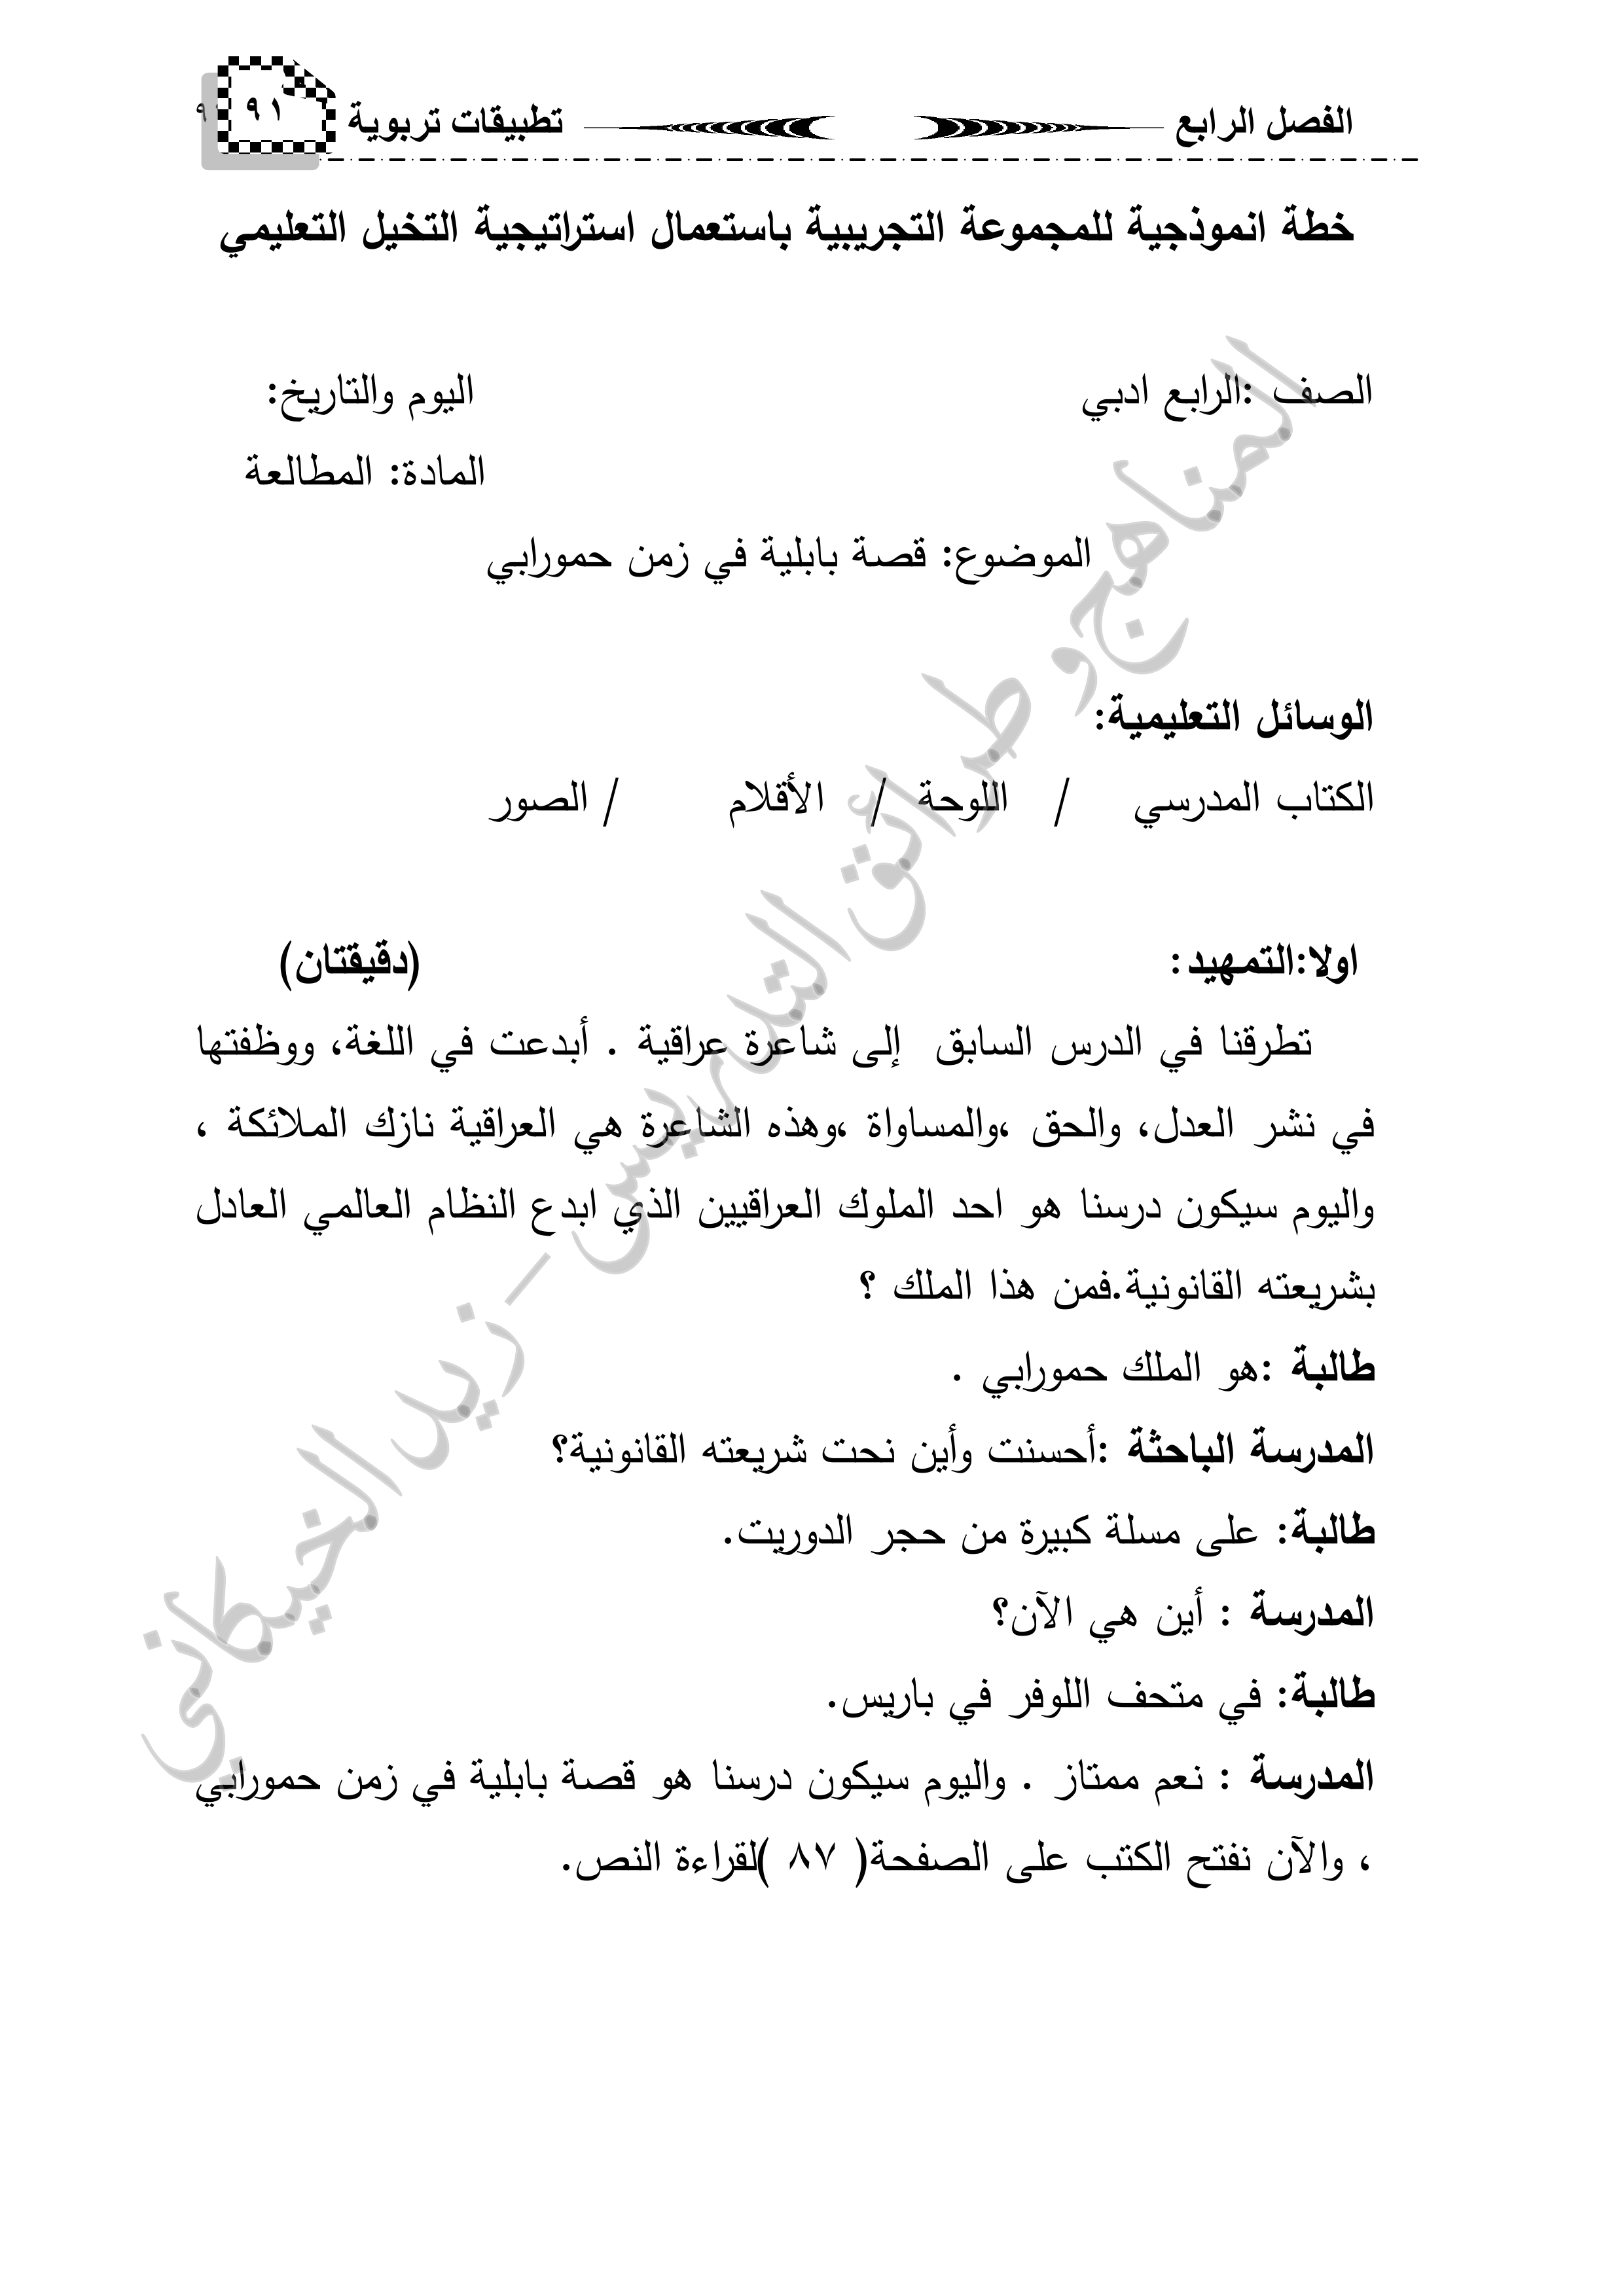 الفصل الرابع تطبيقات تربوية ٩١
خطة انموذجية للمجموعة التجريبية باستعمال استراتيجية التخيل التعليمي
الصف :الرابع ادبي اليوم والتاريخ:
المادة: المطالعة
الموضوع: قصة بابلية في زمن حمورابي
الوسائل التعليمية:
الكتاب المدرسي / اللوحة / الأقلام / الصور
اولا:التمهيد: (دقيقتان)
تطرقنا في الدرس السابق إلى شاعرة عراقية . أبدعت في اللغة، ووظفتها
في نشر العدل، والحق ،والمساواة ،وهذه الشاعرة هي العراقية نازك الملائكة ،
واليوم سيكون درسنا هو احد الملوك العراقيين الذي ابدع النظام العالمي العادل
بشريعته القانونية.فمن هذا الملك ؟
طالبة :هو الملك حمورابي .
المدرسة الباحثة :أحسنت وأين نحت شريعته القانونية؟
طالبة: على مسلة كبيرة من حجر الدوريت.
المدرسة : أين هي الآن؟
طالبة: في متحف اللوفر في باريس.
المدرسة : نعم ممتاز . واليوم سيكون درسنا هو قصة بابلية في زمن حمورابي
، والآن نفتح الكتب على الصفحة( ٨٧ )لقراءة النص.
المناهج و طرائق التدريس – زيد الخيكاني